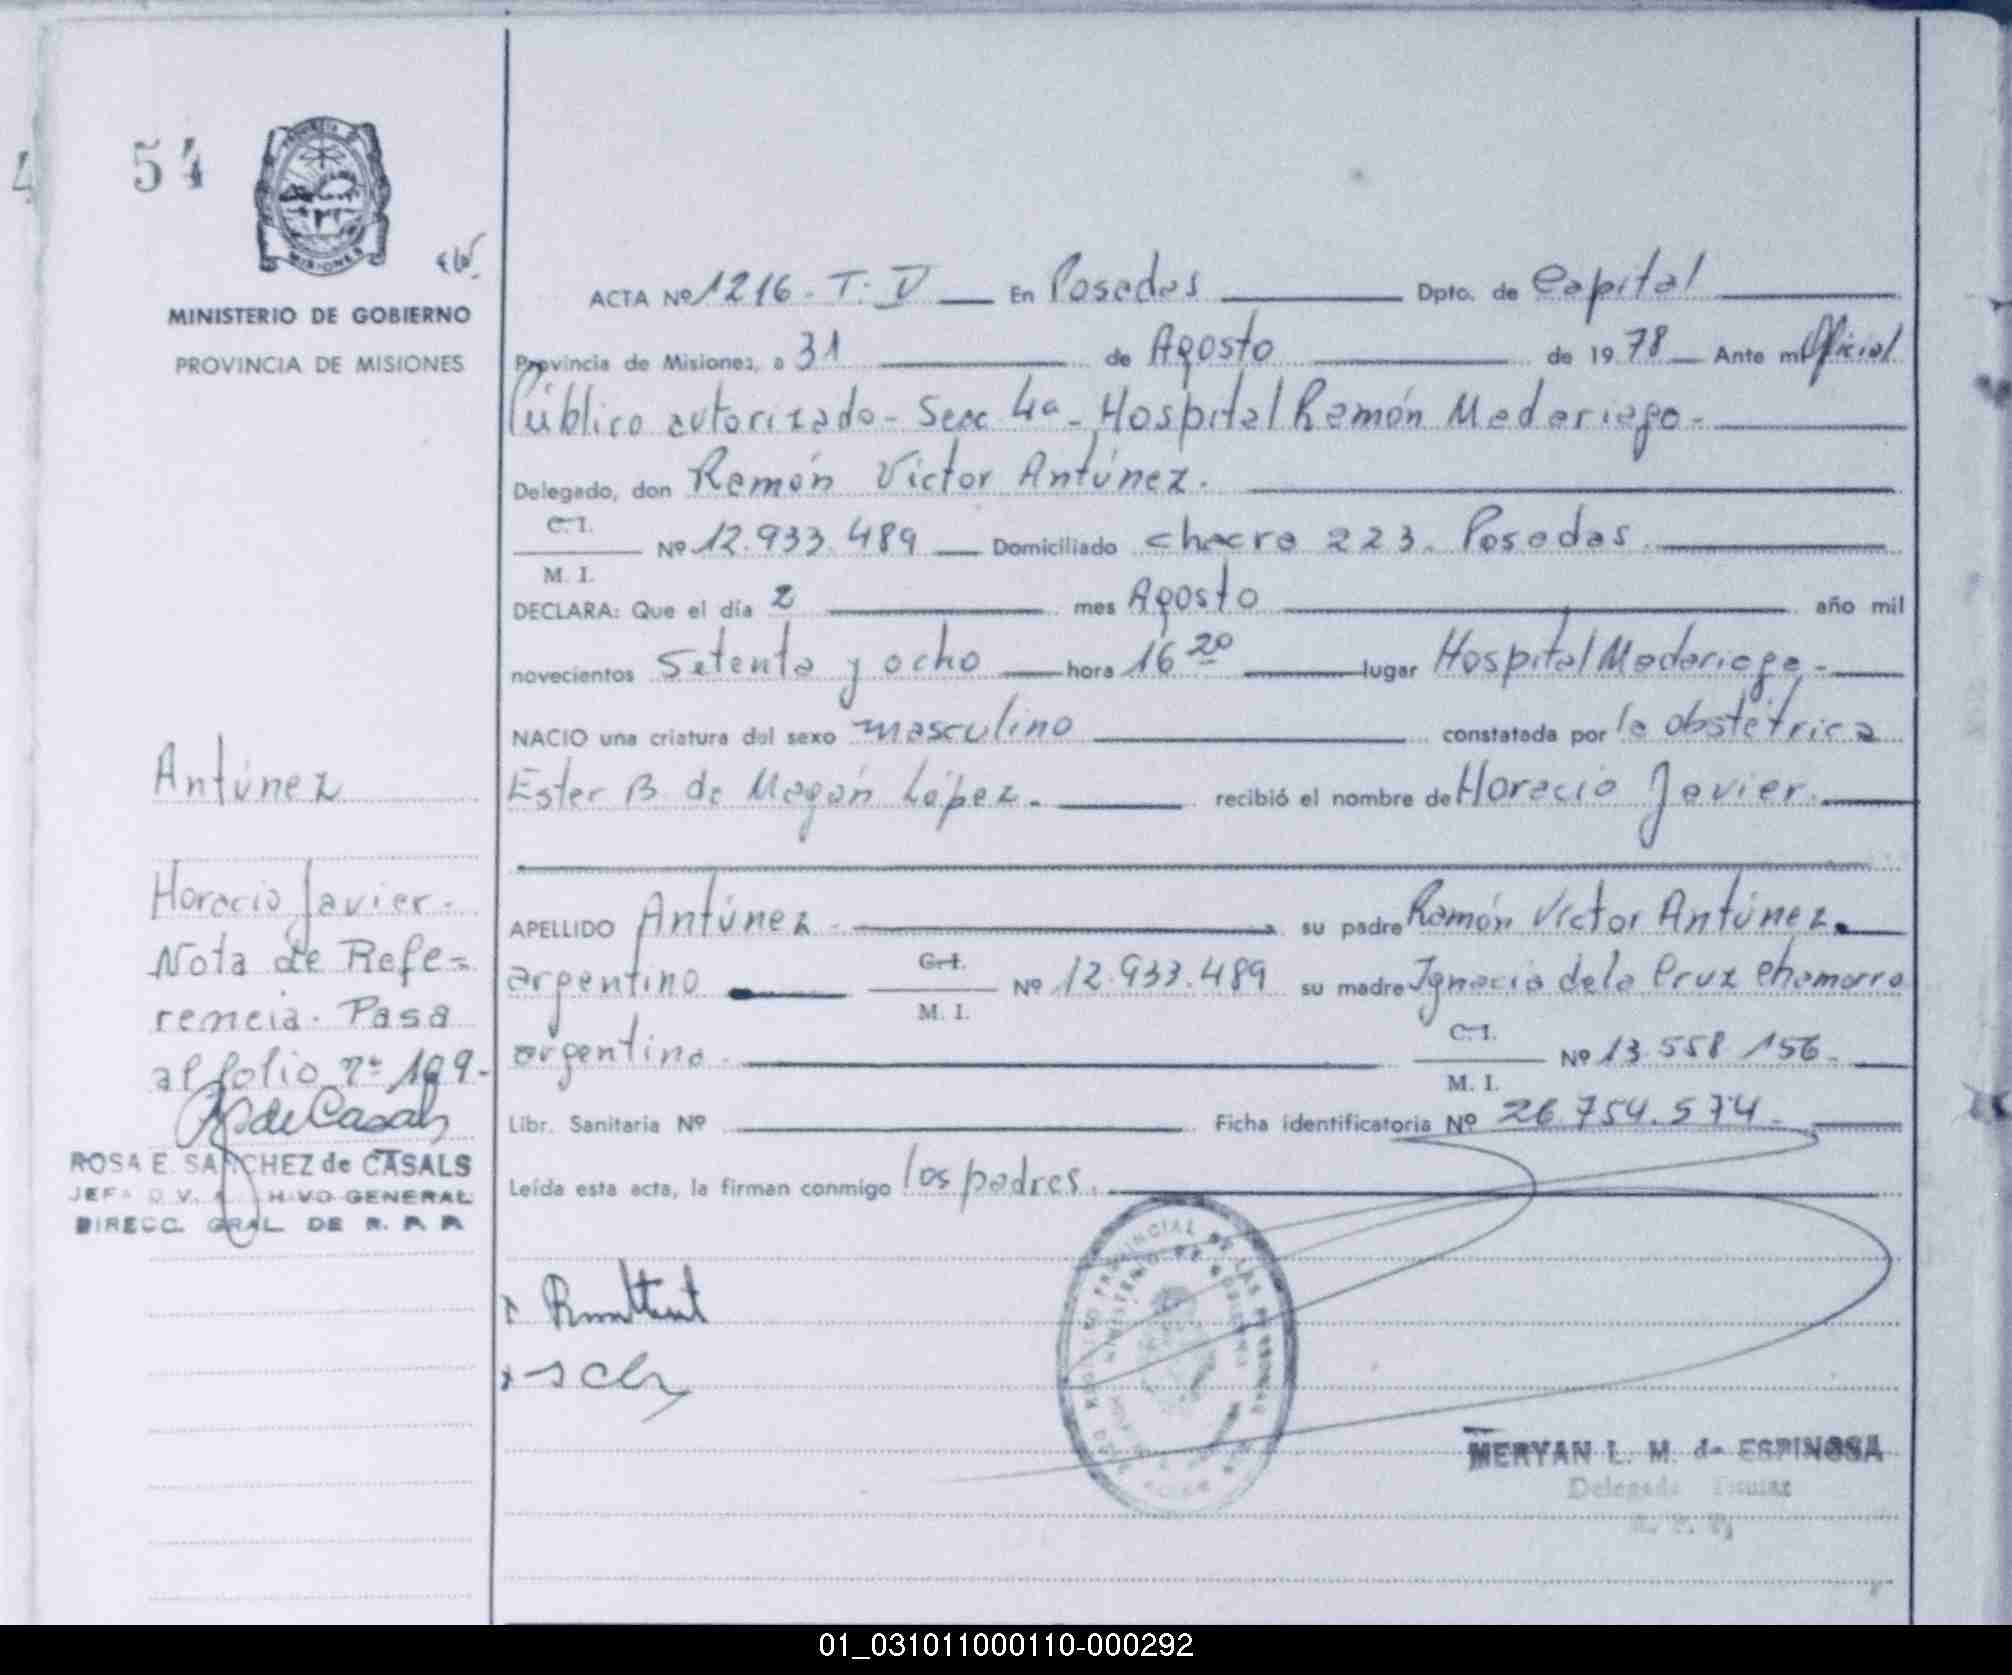 54
PROVINCIA DE
MISIONES
MINISTERIO DE GOBIERNO
PROVINCIA DE MISIONES
ACTA Nº 1216 - T. V — En Posadas — Dpto. de Capital
Provincia de Misiones, a 31 — de Agosto — de 1978 — Ante mi Oficial
Público autorizado - Secc 4a - Hospital Ramón Madariaga -
Delegado, don Ramón Victor Antúnez.
C. I.
M. I.
Nº 12.933.489 — Domiciliado chacra 223. Posadas
DECLARA: Que el día 2 — mes Agosto — año mil
novecientos setenta y ocho — hora 16 20 — lugar Hospital Madariaga -
NACIO una criatura del sexo masculino — constatada por la obstétrica
Ester B. de Magán López. — recibió el nombre de Horacio Javier.
APELLIDO Antúnez — su padre Ramón Víctor Antúnez.
argentino — C. I. M. I. Nº 12.933.489 su madre Ignacia de la Cruz Chamorro
argentina. — C. I. M. I. Nº 13.558.156.
Libr. Sanitaria Nº — Ficha identificatoria Nº 26.754.574.
Leída esta acta, la firman conmigo los padres.
Antúnez
Horacio Javier.
Nota de Refe-
rencia. Pasa
al folio nº 199.
R S de Casals
ROSA E. SANCHEZ de CASALS
JEFA DIV. ARCHIVO GENERAL
DIRECC. GRAL DE R. P. P.
MERYAN L. M. de ESPINOSA
Delegada Titular
R. P. P.
01_031011000110-000292